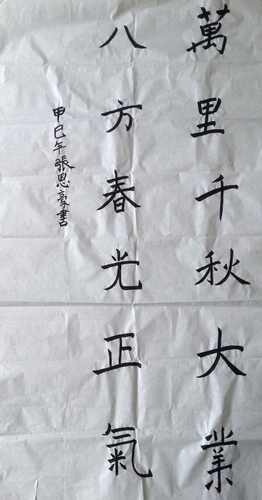 萬里千秋大業
八方春光正氣
甲巳午張思豪書